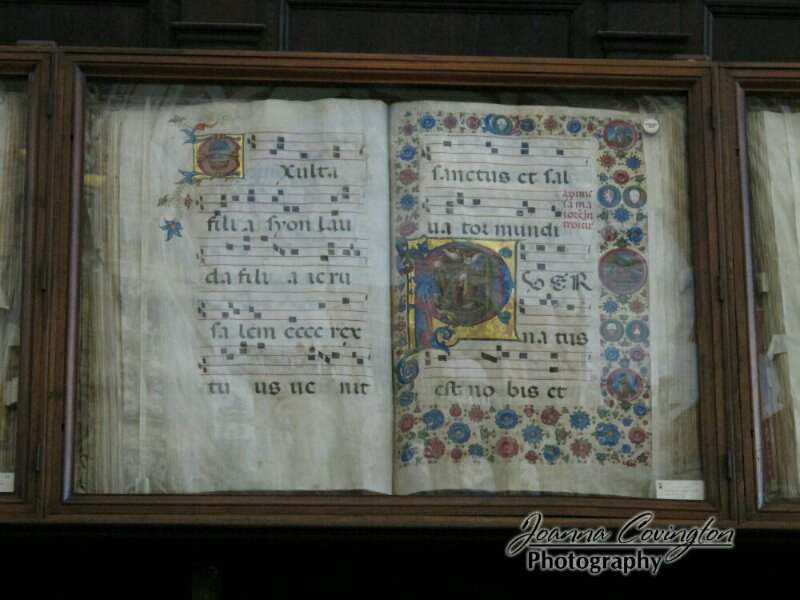 Exulta
fili a syon lau
da fili a ieru
sa lem ecce rex
tu us ue nit
sanctus et sal
ua tor mundi
PVER
na tus
est no bis et
Joanna Covington
Photography